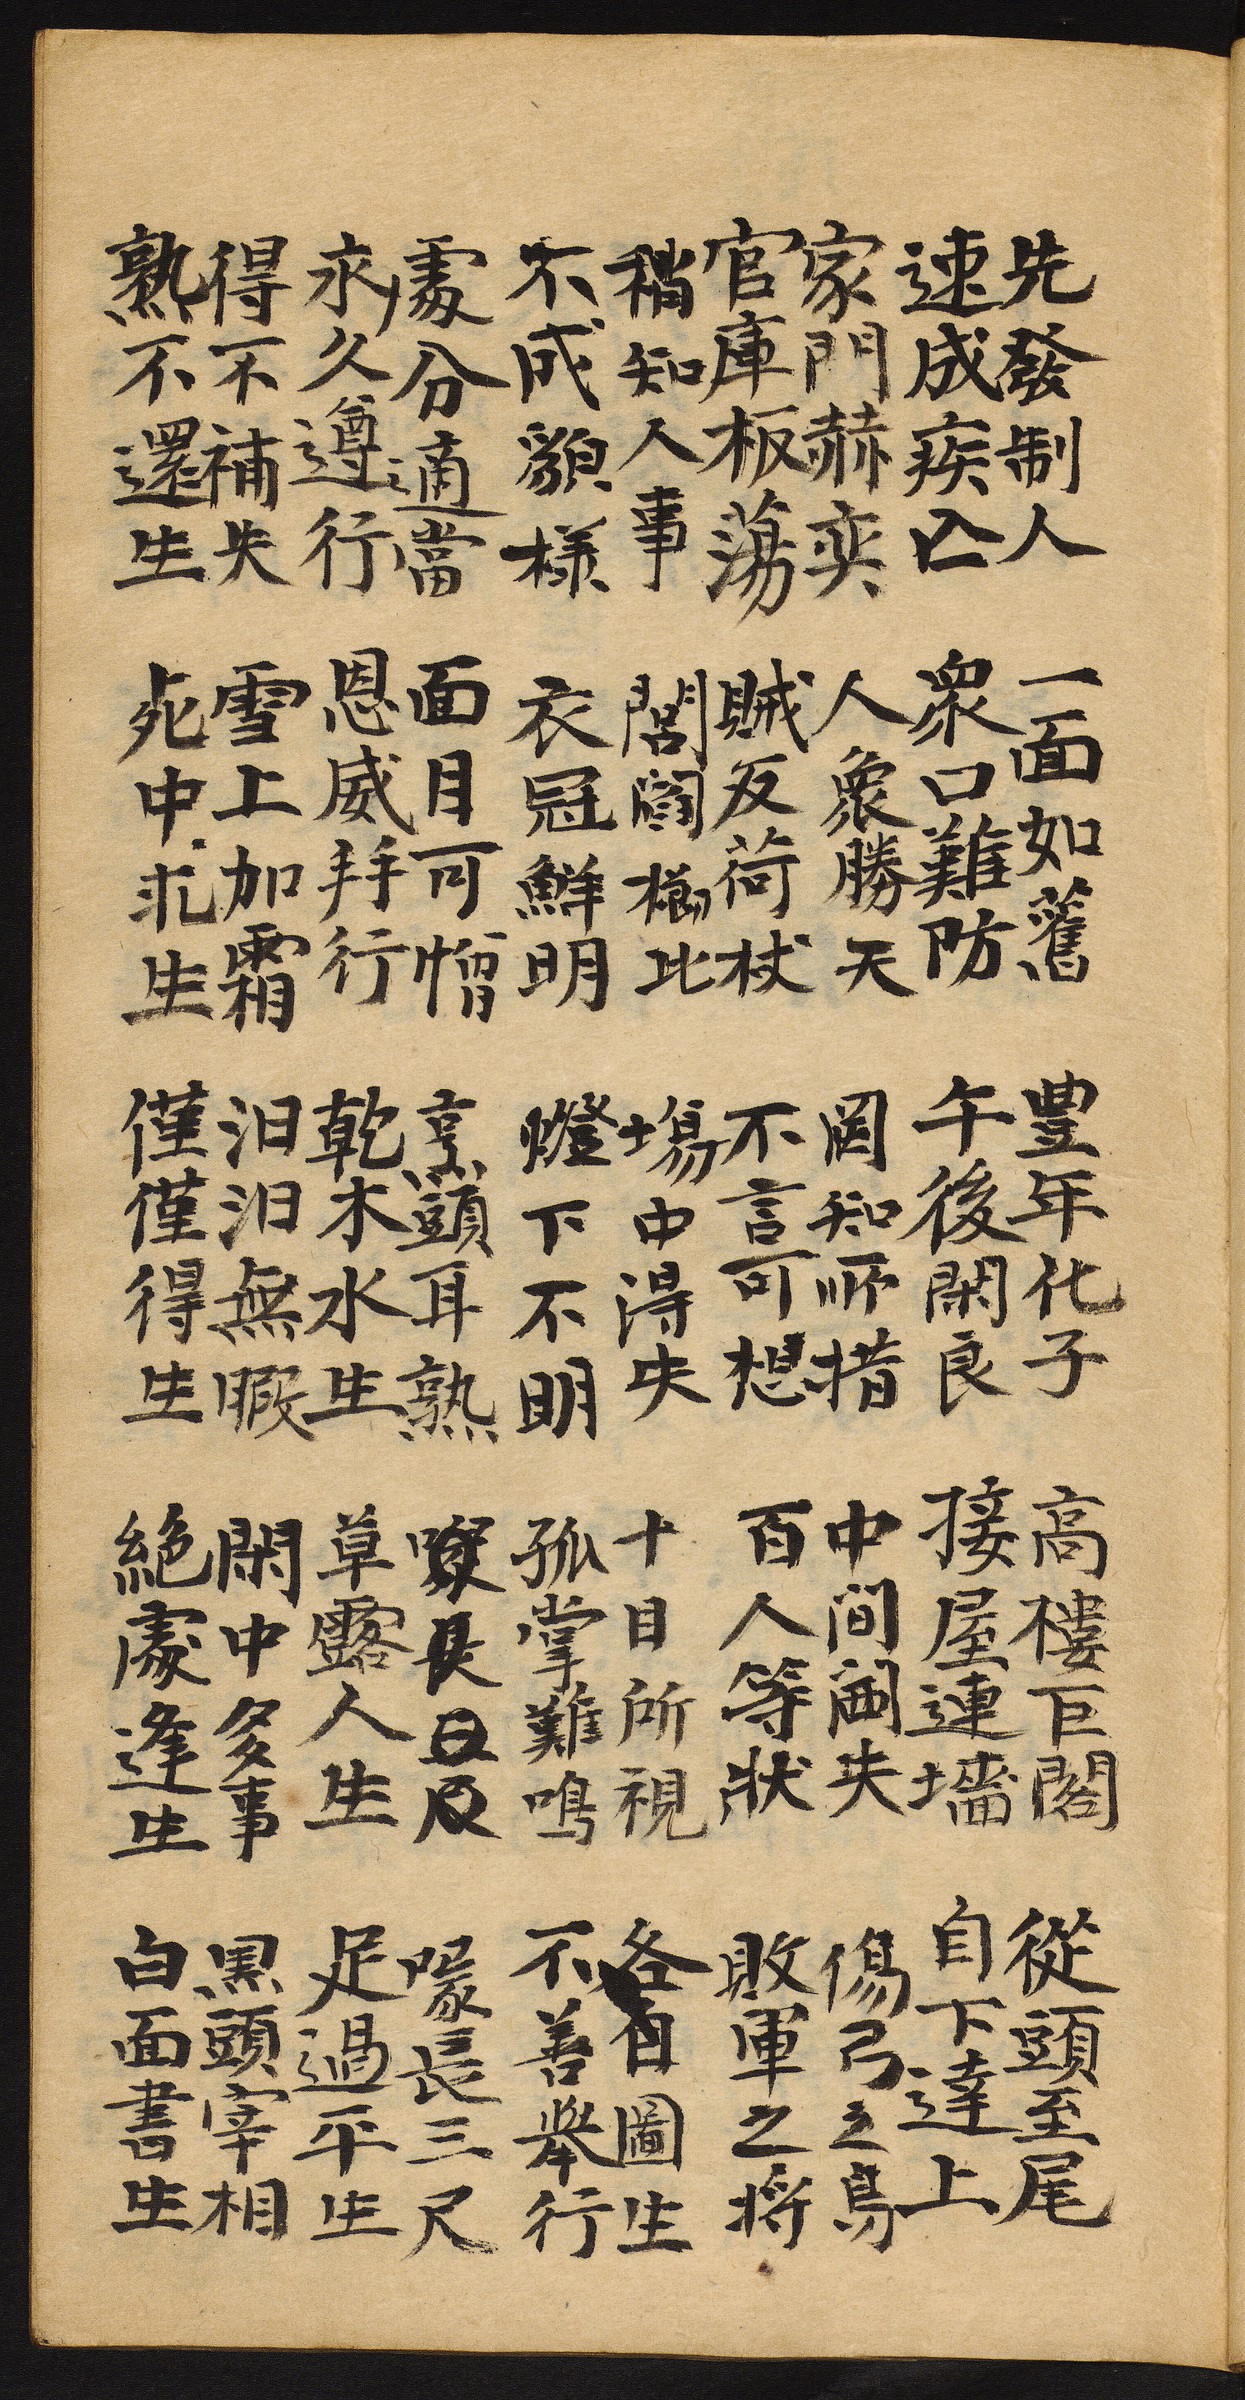 先發制人 一面如舊 豊年化子 高樓巨閣 從頭至尾
速成疾亡 衆口難防 午後閑良 接屋連墻 自下達上
家門赫奕 人衆勝天 罔知所措 中間闕失 傷弓之鳥
官庫板蕩 賊反荷杖 不言可想 百人等狀 敗軍之將
稍知人事 閭閻櫛比 場中得失 十目所視 各自圖生
不成貌様 衣冠鮮明 燈下不明 孤掌難鳴 不善擧行
處分適當 面目可憎 烹頭耳熟 喙長三尺
永久遵行 恩威并行 乾木水生 草露人生 足過平生
得不補失 雪上加霜 汨汨無暇 閑中多事 黒頭宰相
熟不還生 死中求生 僅僅得生 絶處逢生 白面書生